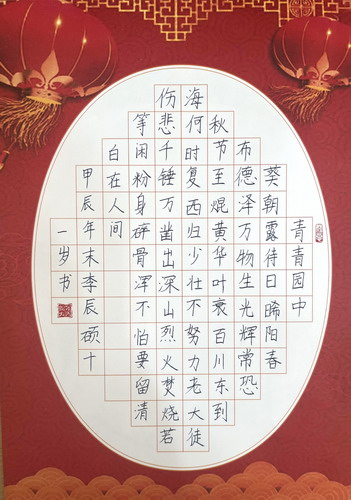 青青园中
葵朝露待日晞阳春
布德泽万物生光辉常恐
秋节至焜黄华叶衰百川东到
海何时复西归少壮不努力老大徒
伤悲千锤万凿出深山烈火焚烧若
等闲粉身碎骨浑不怕要留清
白在人间
甲辰年末李辰硕十
一岁书